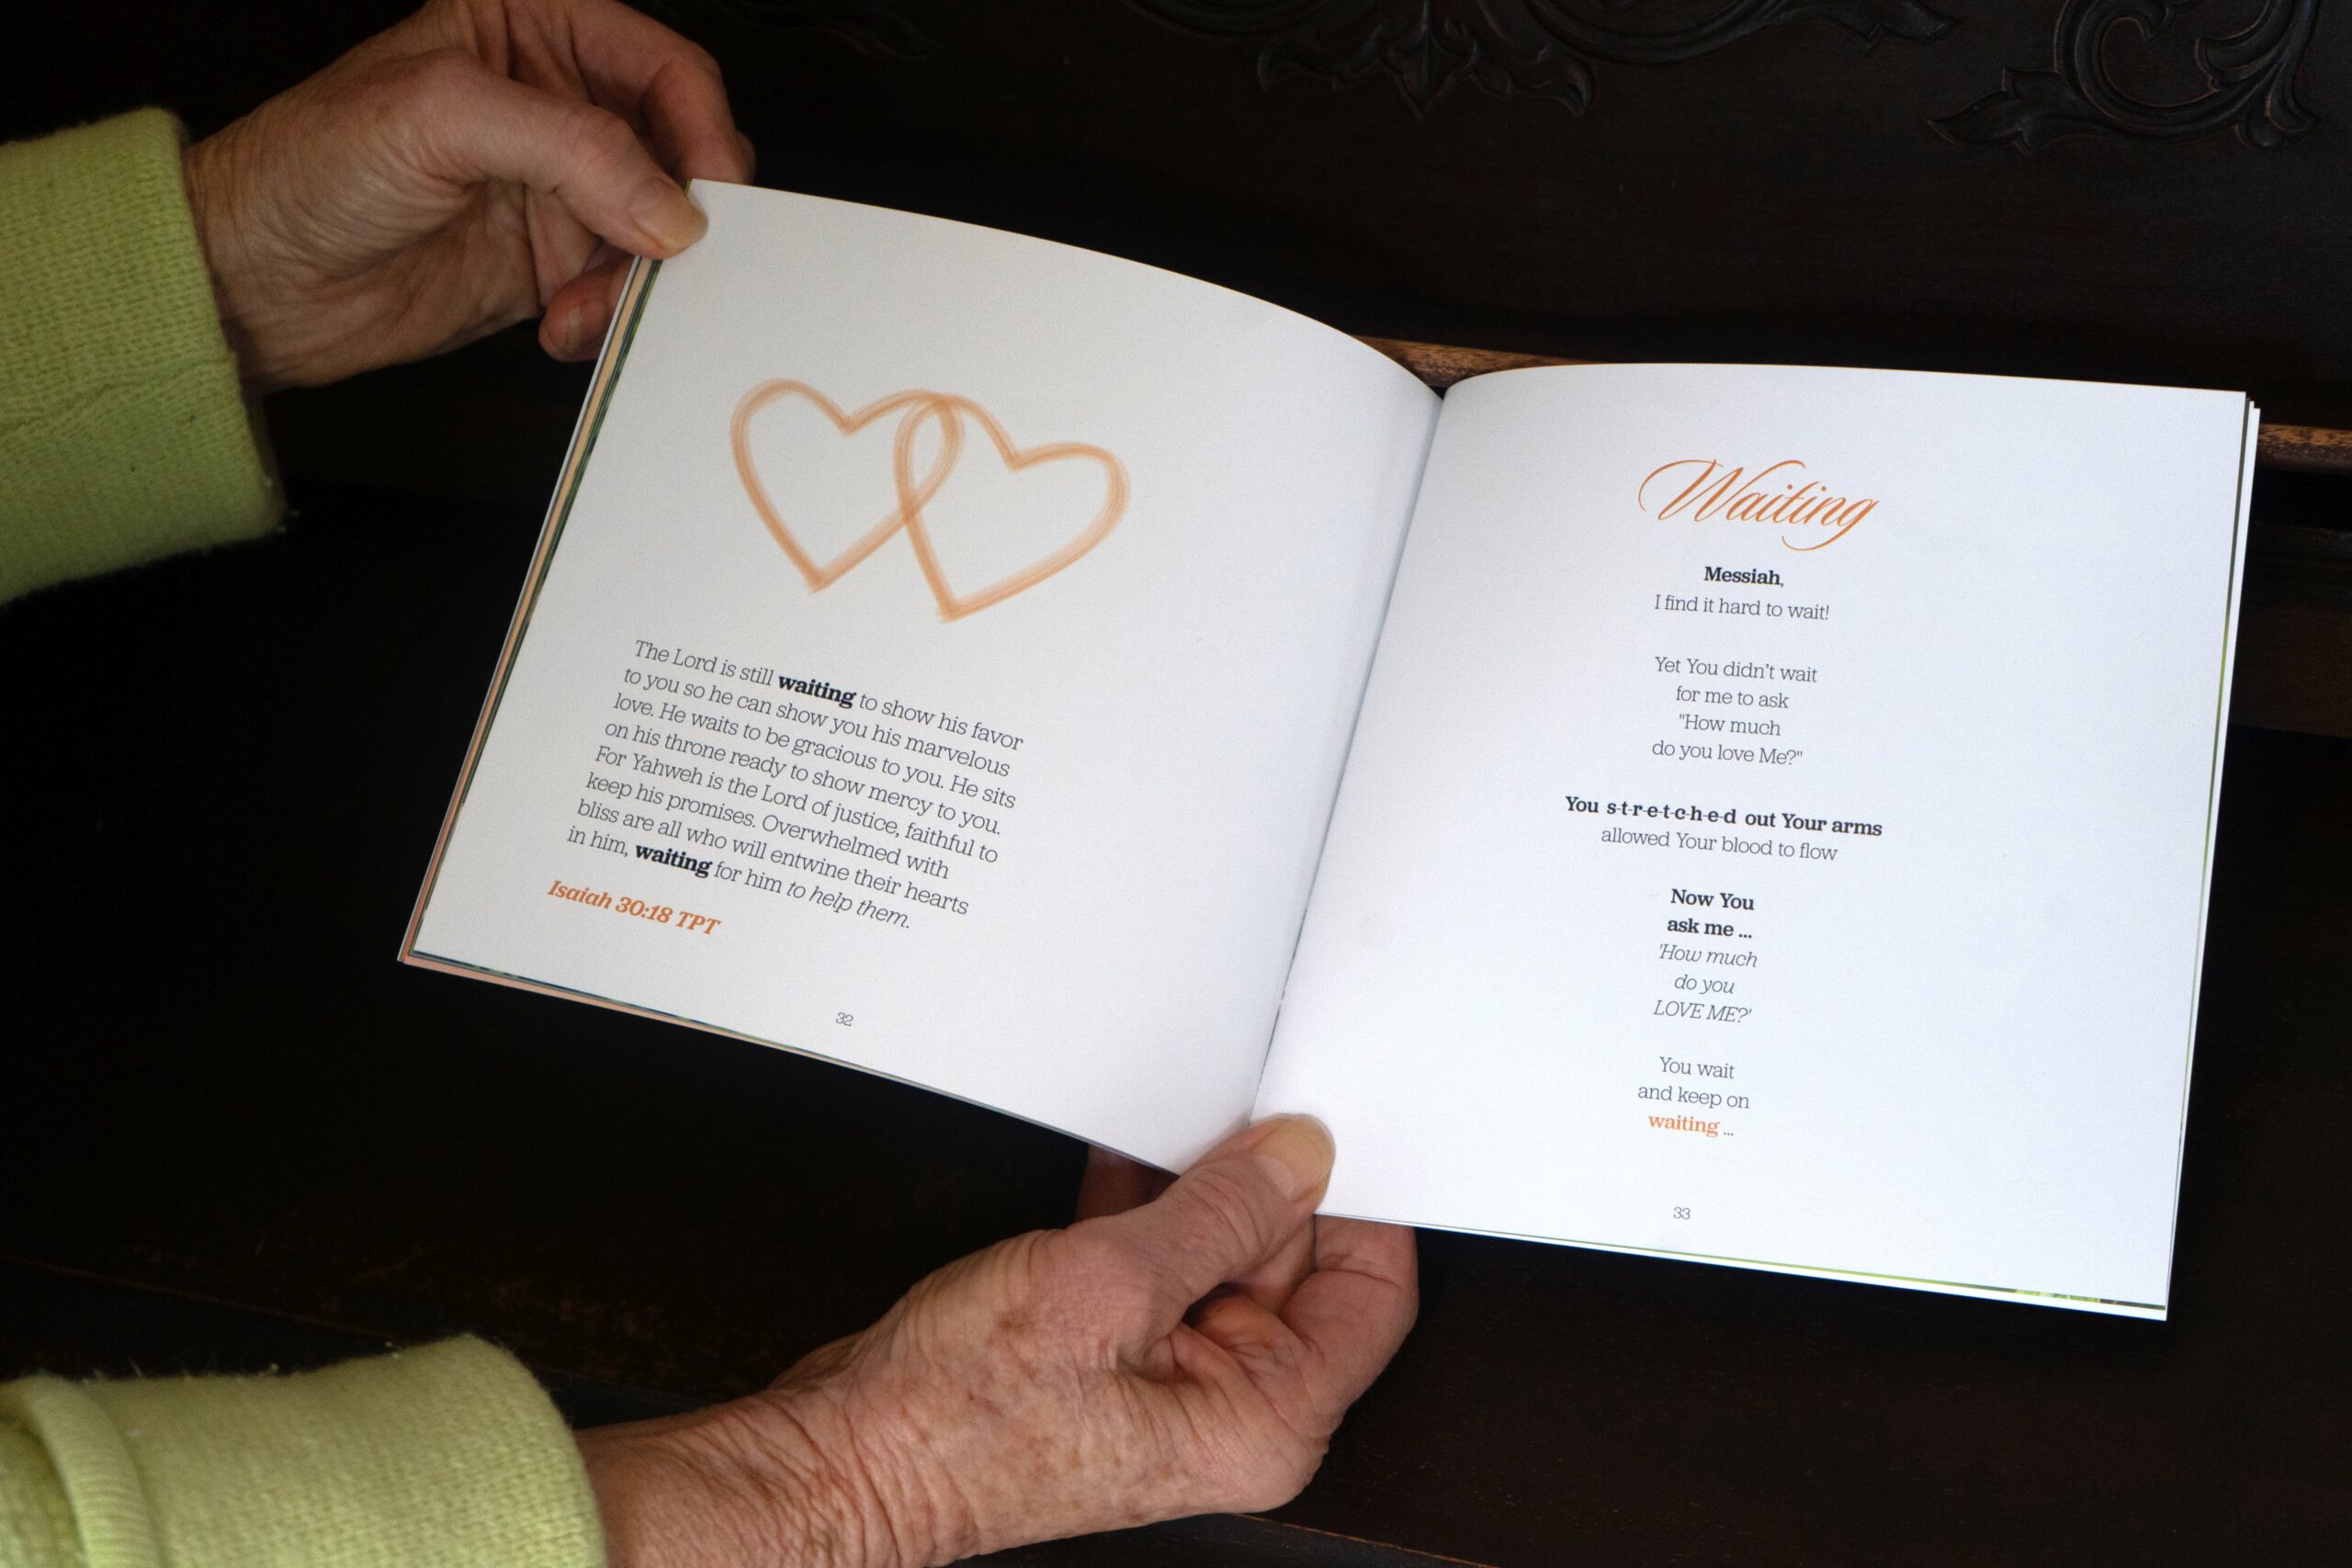 The Lord is still waiting to show his favor
to you so he can show you his marvelous
love. He waits to be gracious to you. He sits
on his throne ready to show mercy to you.
For Yahweh is the Lord of justice, faithful to
keep his promises. Overwhelmed with
bliss are all who will entwine their hearts
in him, waiting for him to help them.
Isaiah 30:18 TPT
32
Waiting
Messiah,
I find it hard to wait!
Yet You didn't wait
for me to ask
"How much
do you love Me?"
You s-t-r-e-t-c-h-e-d out Your arms
allowed Your blood to flow
Now You
ask me ...
'How much
do you
LOVE ME?'
You wait
and keep on
waiting ...
33